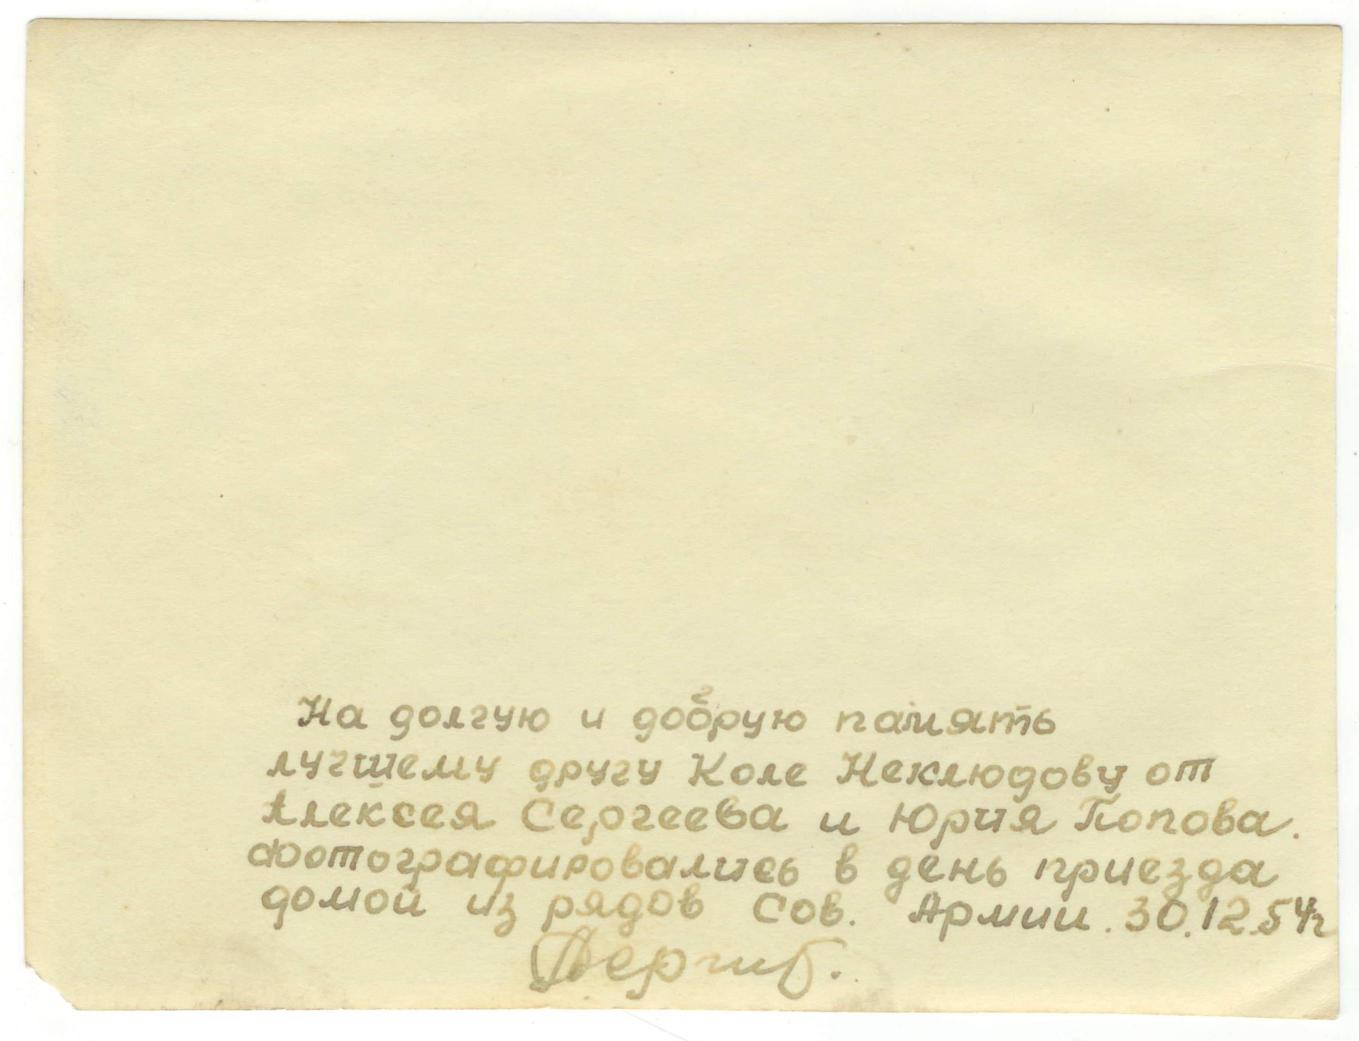 На долгую и добрую память
лучшему другу Коле Неклюдову от
Алексея Сергеева и Юрия Попова.
Фотографировались в день приезда
домой из рядов Сов. Армии. 30.12.54г